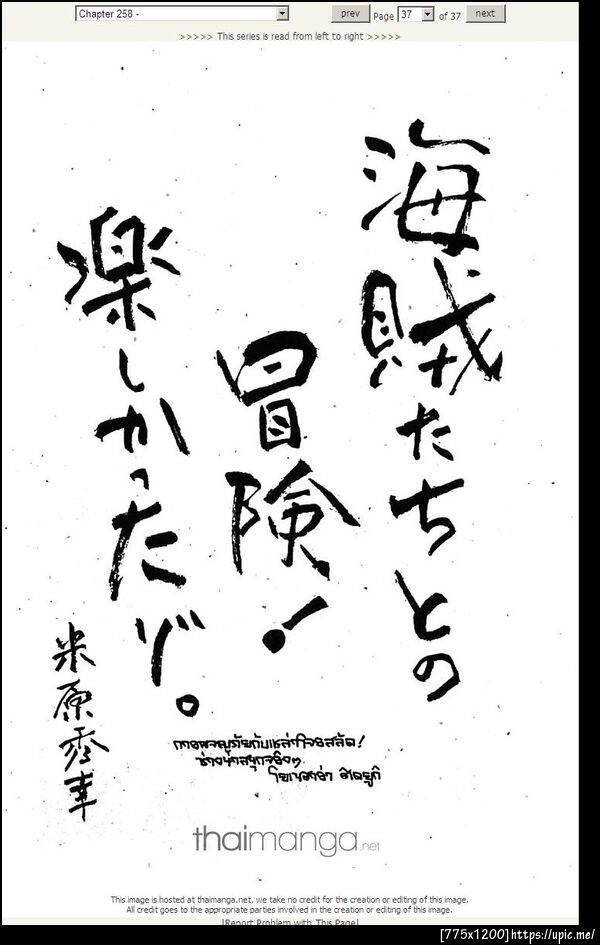 Chapter 258 -
prev Page 37 of 37 next
>>>>> This series is read from left to right >>>>>
海賊たちとの
冒険！
楽しかったゾ。
米原秀幸
การผจญภัยกับเหล่าโจรสลัด!
ช่างน่าสนุกจริงๆ
โยเนฮาร่า ฮิเดยูกิ
thaimanga.net
This image is hosted at thaimanga.net, we take no credit for the creation or editing of this image.
All credit goes to the appropriate parties involved in the creation or editing of this image.
[Report Problem with This Page]
[775x1200]https://upic.me/